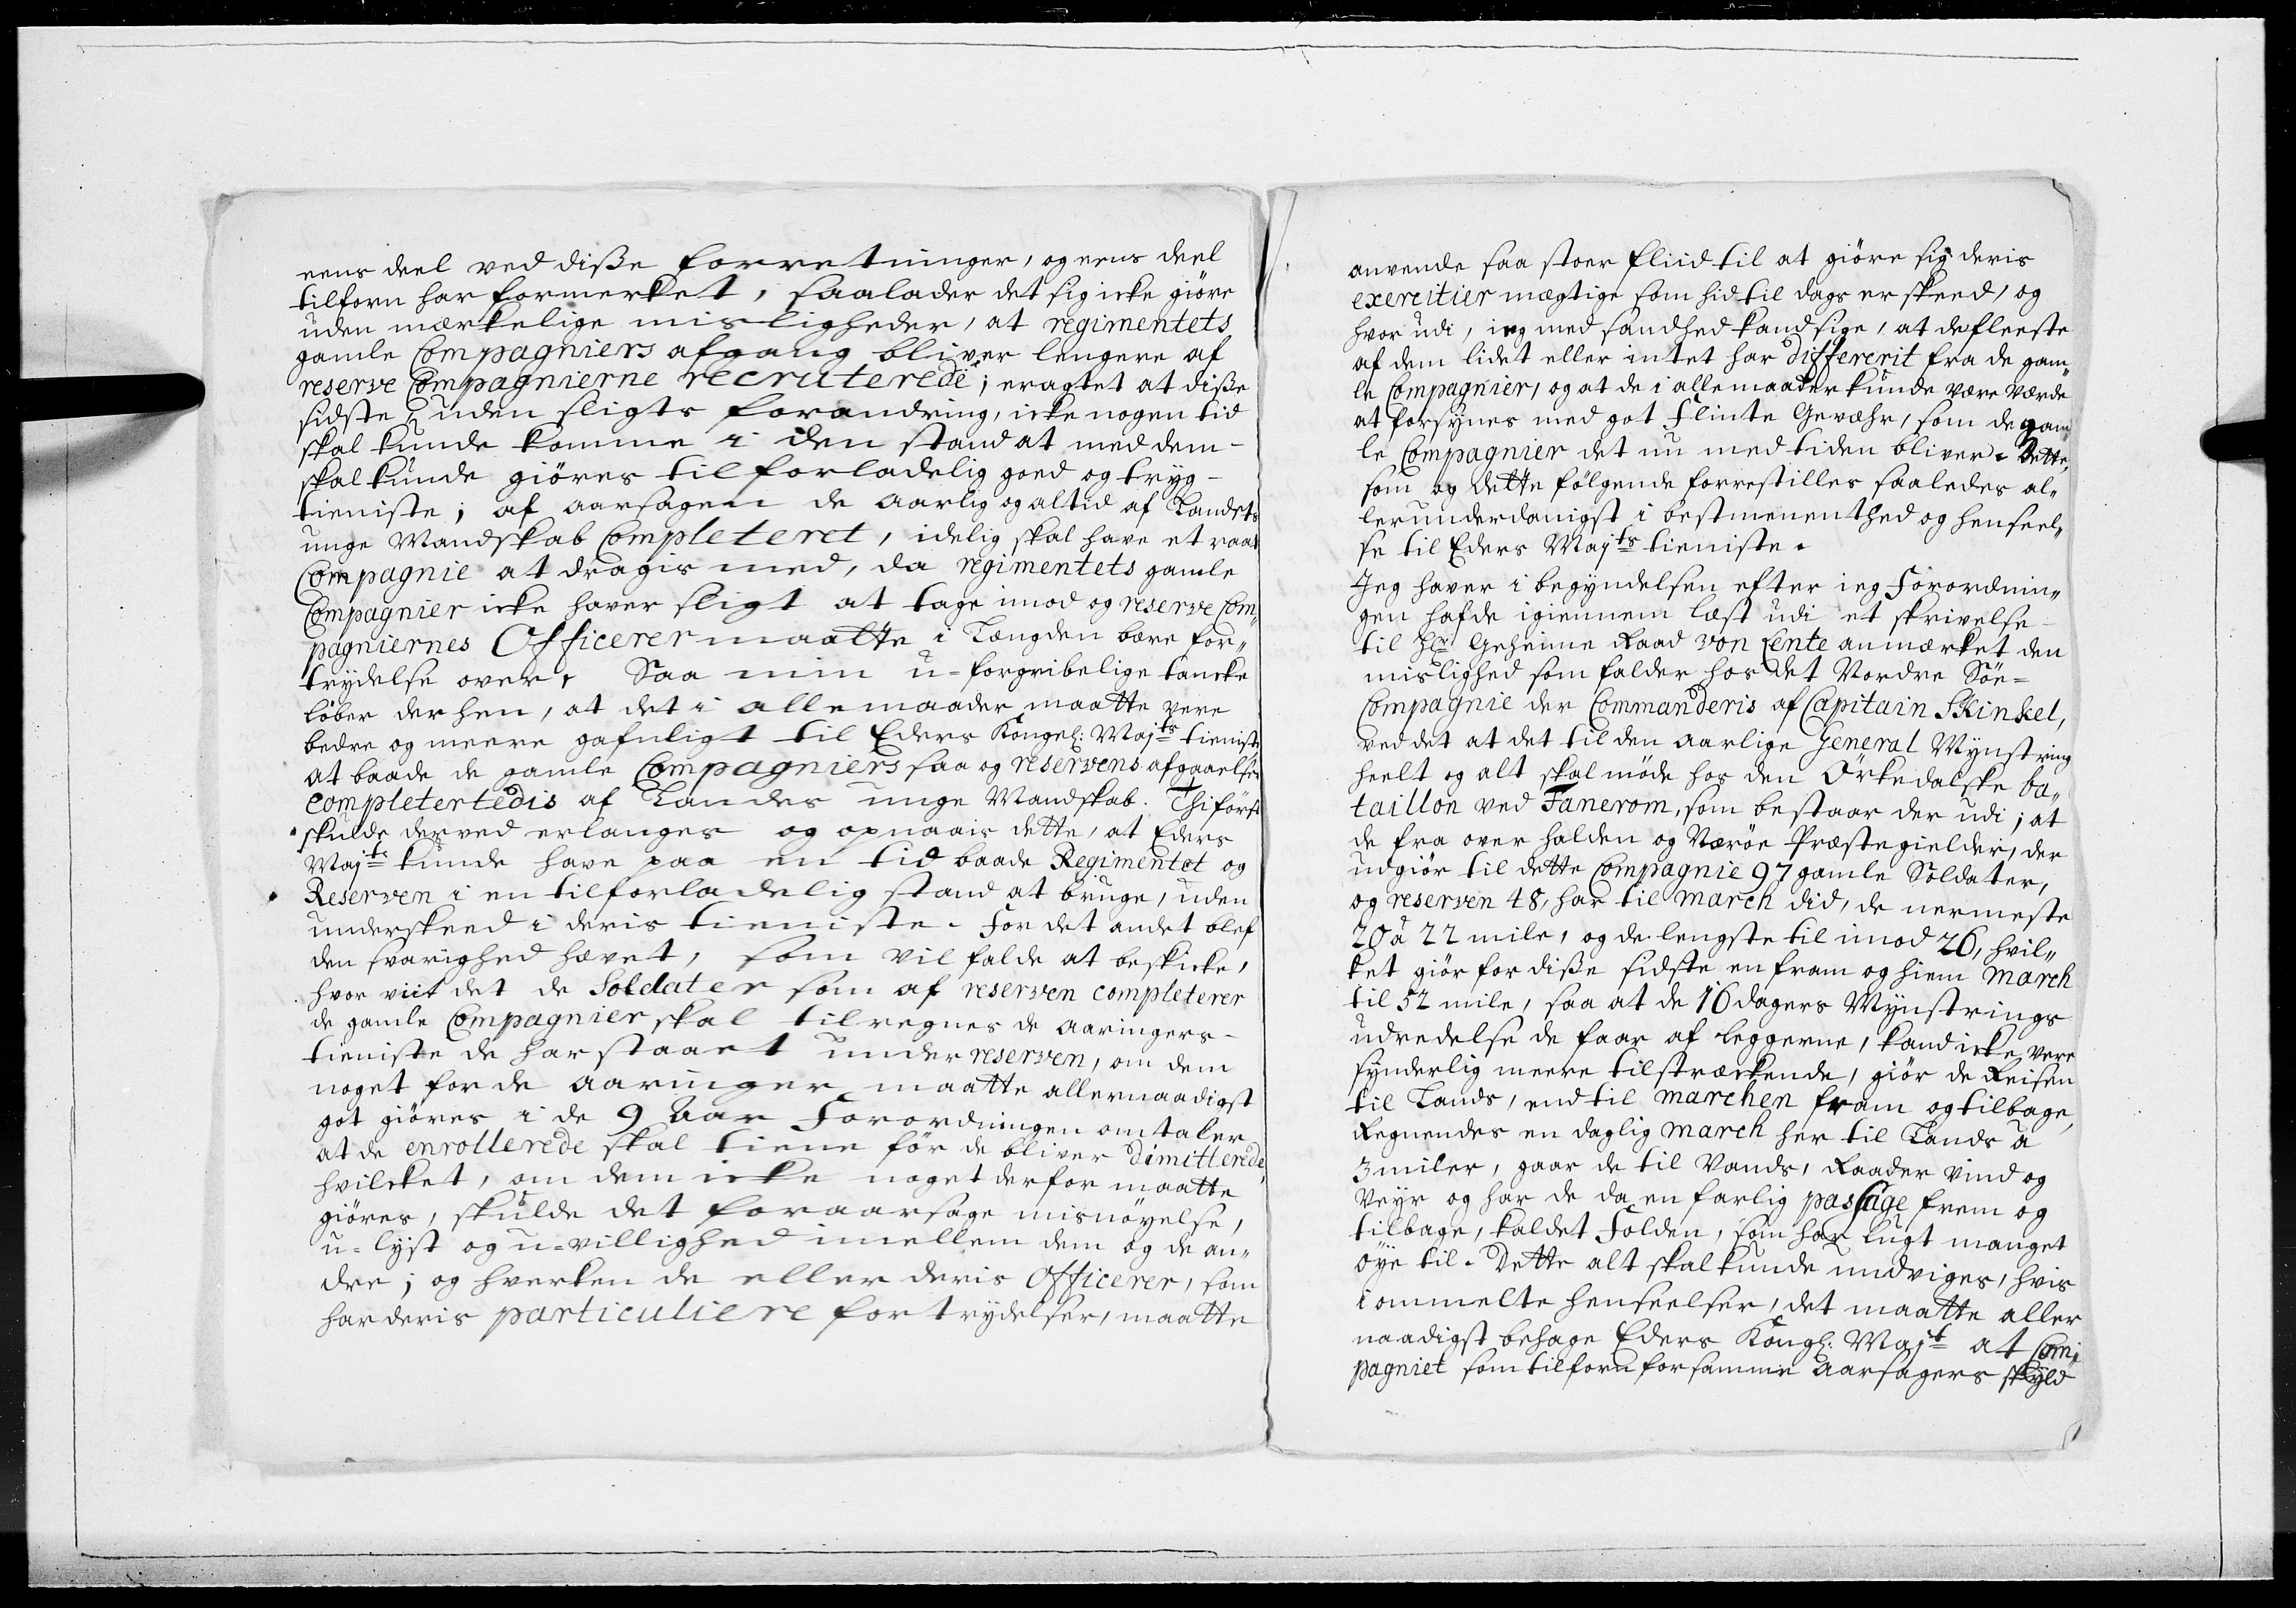 eens deel ved diße forretninger, og eens deel
tilforn har formerket, saa lader det sig icke giöre
uden mærkelige misligheder, at regimentets
gamle Compagniers afgang bliver lengere af
reserve Compagnierne recruterede; eragtet at diße
sidste, uden sligts forandring, icke nogen tid
skal kunde komme i den stand at med dem
skal kunde giöres tilforladelig goed og tryg
tieniste; af aarsagen de aarlig og altid af Landets
unge Mandskab Completeret, idelig skal have et raat
Compagnie at dragis med, da regimentets gamle
Compagnier icke haver sligt at tage imod og reserve Com„
pagniernes Officerer maatte i Længden bære for„
trydelse over. Saa min u-forgribelige tancke
löber der hen, at det i allemaader maatte vere
bedre og meere gafnligt til Eders Kongel: Majts tieniste
at baade de gamle Compagniers saa og reservens afgaaelser
completertedis af Landes unge Mandskab. Thi först
skulde derved erlanges og opnaais dette, at Eders
Majt kunde have paa en tid baade Regimentet og
Reserven i en tilforladelig stand at bruge, uden
underskeed i deris tieniste. For det andet blef
den svarighed hævet, som vil falde at beskicke,
hvor viit det de Soldater som af reserven completerer
de gamle Compagnier skal tilregnes de aaringers
tieniste de har staaet under reserven, om dem
noget for de aaringer maatte allernaadigst
got giöres i de 9 aar Forordningen omtaler
at de enrollerede skal tiene för de bliver dimitterede,
hvilcket, om dem icke noget derfor maatte
giöres, skulde det foraarsage misnöyelse,
u-lyst og u-villighed imellem dem og de an„
dre; og hverken de eller deris Officerer, som
har deris particuliere fortrydelser, maatte
anvende saa stoer fliid til at giöre sig deris
exercitier mægtige som hid til dags er skeed, og
hvor udi, ieg med sandhed kand sige, at de fleeste
af dem lidet eller intet har differerit fra de gam„
le Compagnier, og at de i allemaader kunde være værde
at forsynes med got Flinte Gevæhr, som de gam„
le Compagnier det nu med tiden bliver. Dette,
som og dette fölgende forrestilles saaledes al„
lerunderdanigst i bestmenenthed og henseel„
se til Eders Majts tieniste.
Jeg haver i begyndelsen efter ieg Forordnin„
gen hafde igiennem læst udi et skrivelse
til Hr Geheime Raad von Lente anmærket den
mislighed som falder hos det Nordre Söe-
Compagnie der Commanderis af Capitain Skinkel,
ved det at det til den aarlige General Mynstring
heelt og alt skal möde hos den Örkedalske ba„
taillon ved Fanerom, som bestaar der udi; at
de fra over halden og Næröe Præstegielder, der
udgiör til dette Compagnie 97 gamle Soldater,
og reserven 48, har til march did, de nermeste
20 à 22 mile, og de lengste til imod 26, hvil„
ket giör for diße sidste en fram og hiem march
til 52 mile, saa at de 16 dagers Mynstrings
udredelse de faar af leggerne, kand icke vere
synderlig meere tilstreckende, giör de Reisen
til Lands, end til marchen fram og tilbage,
Regnendes en daglig march her til Lands à
3 miler, gaar de til Vands, Raader Vind og
Veyr og har de da en farlig passage frem og
tilbage, kaldet Folden, som har lugt manget
öye til. Dette alt skal kunde undviges, hvis
i ommelte henseelser, det maatte aller
naadigst behage Eders Kongl: Majt at Com„
pagniet som tilforn for samme aarsagers skyld